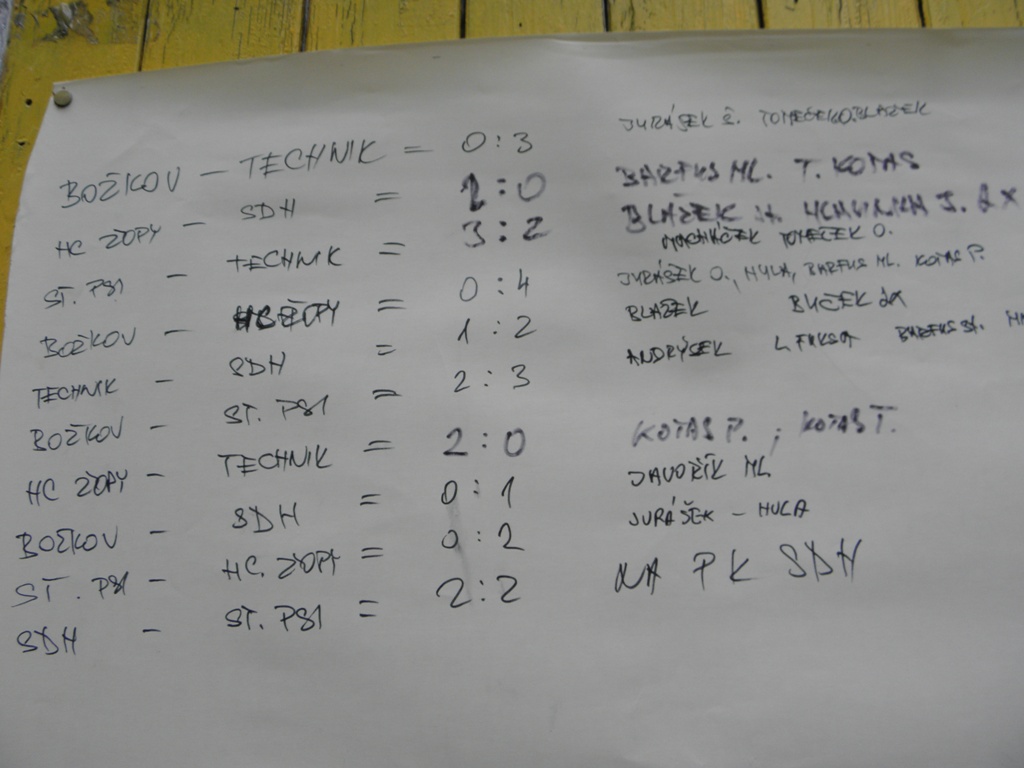 BOŽKOV – TECHNIK = 0:3 JURÁSEK Z. TOMEČEK O. BLAŽEK
HC ŽOPY – SDH = 2:0 BARTKS ML. T. KOTAS
ST. PSI – TECHNIK = 3:2 BLAŽEK J. 2X
MACHÁČEK TOMEČEK O.
BOŽKOV – HC ŽOPY = 0:4 JURÁŠEK O., HULA, BARTKS ML. KOTAS P.
TECHNIK – SDH = 1:2 BLAŽEK BUČEK 2X
BOŽKOV – ST. PSI = 2:3 ANDRÝSEK L. FUKSA BARTKS ST.
HC ŽOPY – TECHNIK = 2:0 KOTAS P. ; KOTAS T.
BOŽKOV – SDH = 0:1 JAVOŘÍK ML
ST. PSI – HC. ŽOPY = 0:2 JURÁŠEK – HULA
SDH – ST. PSI = 2:2 NA PK SDH